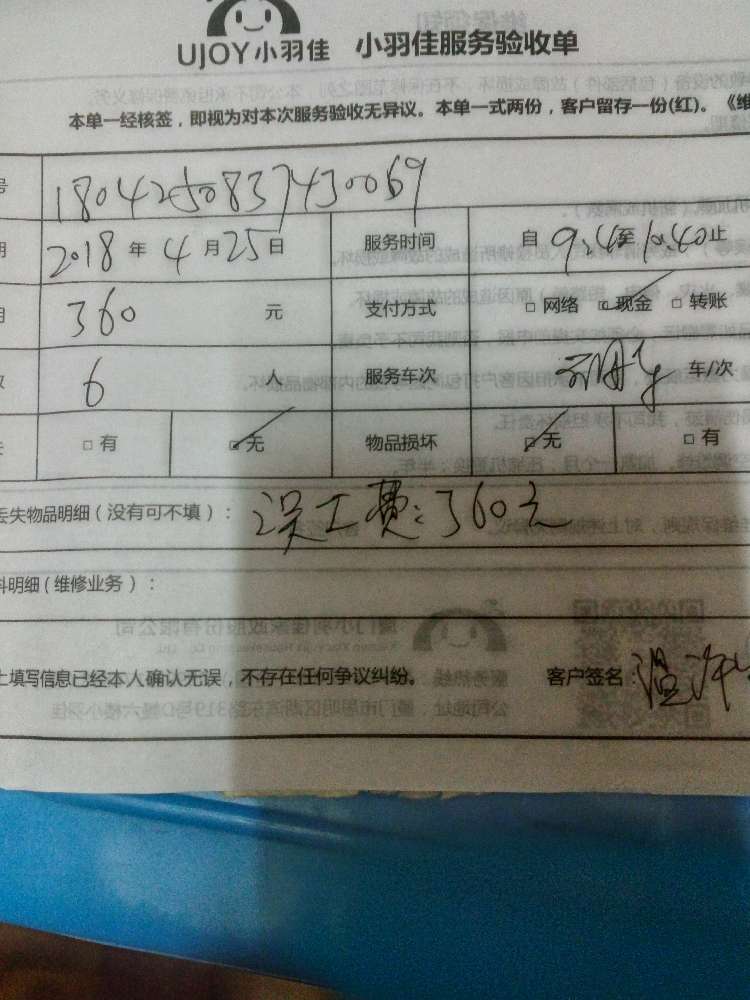 UJOY小羽佳 小羽佳服务验收单
本单一经核签，即视为对本次服务验收无异议。本单一式两份，客户留存一份(红)。《维
号 1804250837430069
期 2018年4月25日 服务时间 自9:40至10:40止
用 360元 支付方式 □网络 ☑现金 □转账
数 6人 服务车次 车/次
失 □有 ☑无 物品损坏 ☑无 □有
丢失物品明细（没有可不填）： 误工费：360元
料明细（维修业务）：
上填写信息已经本人确认无误，不存在任何争议纠纷。 客户签名：温